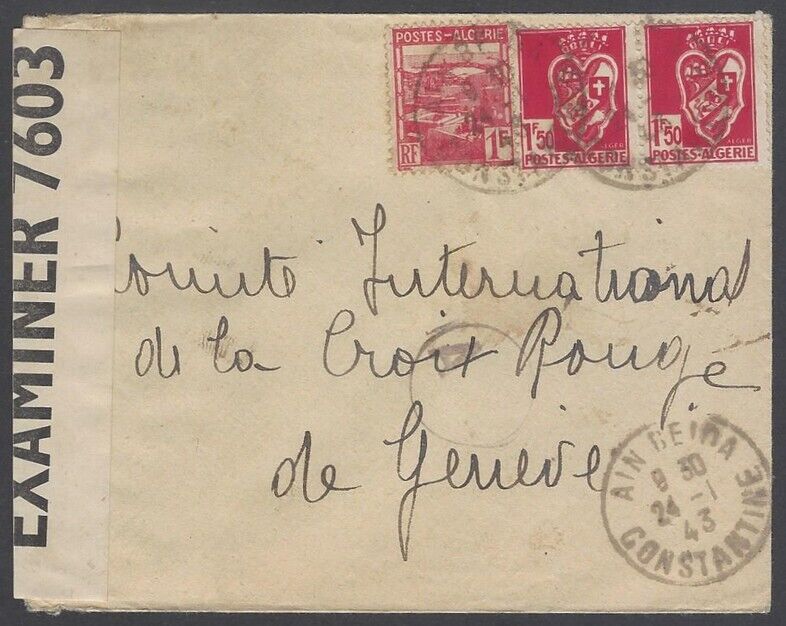 EXAMINER 7603
POSTES-ALGERIE
RF 1F
1F50
ALGER
POSTES-ALGERIE
1F50
ALGER
POSTES-ALGERIE
Comité International
de la Croix Rouge
de Genève
AIN BEIDA
8 30
24 -1
43
CONSTANTINE